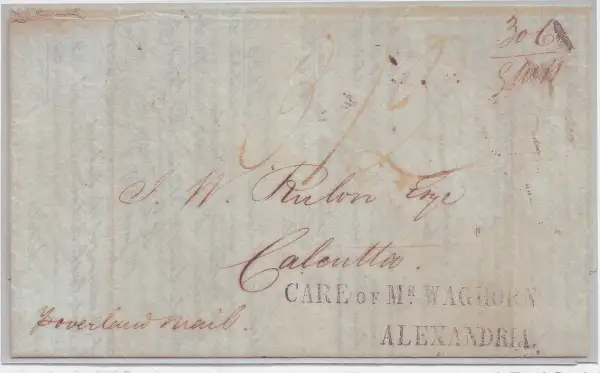 306
J. W. Rulon Esqe
Calcutta.
CARE OF MR WAGHORN
ALEXANDRIA.
P overland mail.